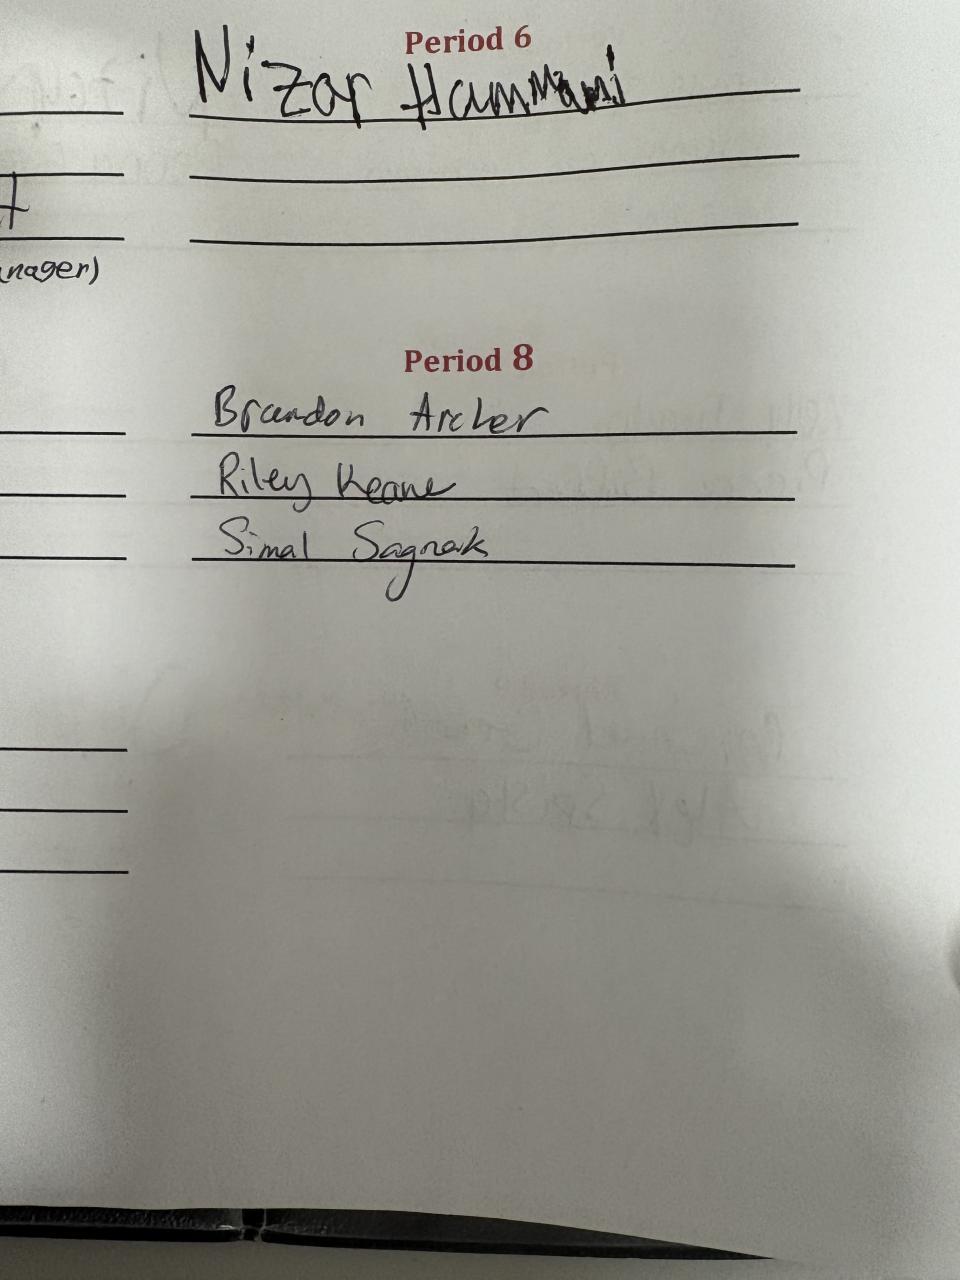 Period 6
Nizar Hammami
anager)
Period 8
Brandon Archer
Riley Keane
Simal Sagnak